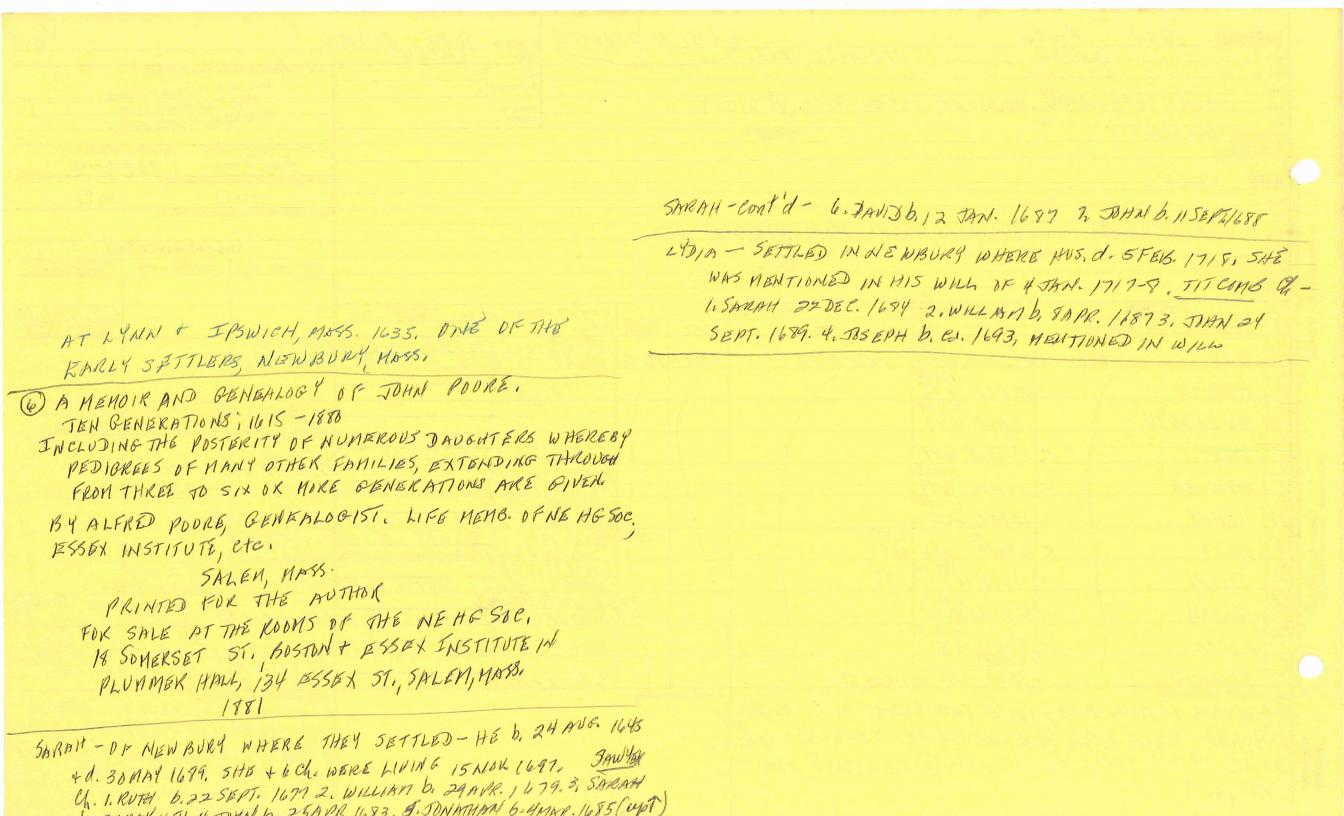 AT LYNN + IPSWICH, MASS. 1635. ONE OF THE
EARLY SETTLERS, NEWBURY, MASS.
6 A MEMOIR AND GENEALOGY OF JOHN POORE.
TEN GENERATIONS; 1615 - 1880
INCLUDING THE POSTERITY OF NUMEROUS DAUGHTERS WHEREBY
PEDIGREES OF MANY OTHER FAMILIES, EXTENDING THROUGH
FROM THREE TO SIX OR MORE GENERATIONS ARE GIVEN
BY ALFRED POORE, GENEALOGIST. LIFE MEMB. OF NE HG SOC,
ESSEX INSTITUTE, etc.
SALEM, MASS.
PRINTED FOR THE AUTHOR
FOR SALE AT THE ROOMS OF THE NE HG SOC.
18 SOMERSET ST., BOSTON + ESSEX INSTITUTE IN
PLUMMER HALL, 134 ESSEX ST., SALEM, MASS.
1881
SARAH - OF NEWBURY WHERE THEY SETTLED - HE b. 24 AUG. 1645
+ d. 30 MAY 1689. SHE + 6 Ch. WERE LIVING 15 NOV 1697. SAWYER
Ch. 1. RUTH b. 22 SEPT. 1677 2. WILLIAM b. 29 APR. 1679. 3. SARAH
4. JOHN b. 25 APR 1683. 5. JONATHAN b. 4 MAR. 1685 (up↑)
SARAH - cont'd - 6. DAVID b. 12 JAN. 1687 7. JOHN b. 11 SEPT 1688
LYDIA - SETTLED IN NEWBURY WHERE HUS. d. 5 FEB. 1718. SHE
WAS MENTIONED IN HIS WILL OF 4 JAN. 1717-8. TITCOMB Ch -
1. SARAH 22 DEC. 1684 2. WILLIAM b. 8 APR. 1687 3. JOHN 24
SEPT. 1689. 4. JOSEPH b. ca. 1693, MENTIONED IN WILL